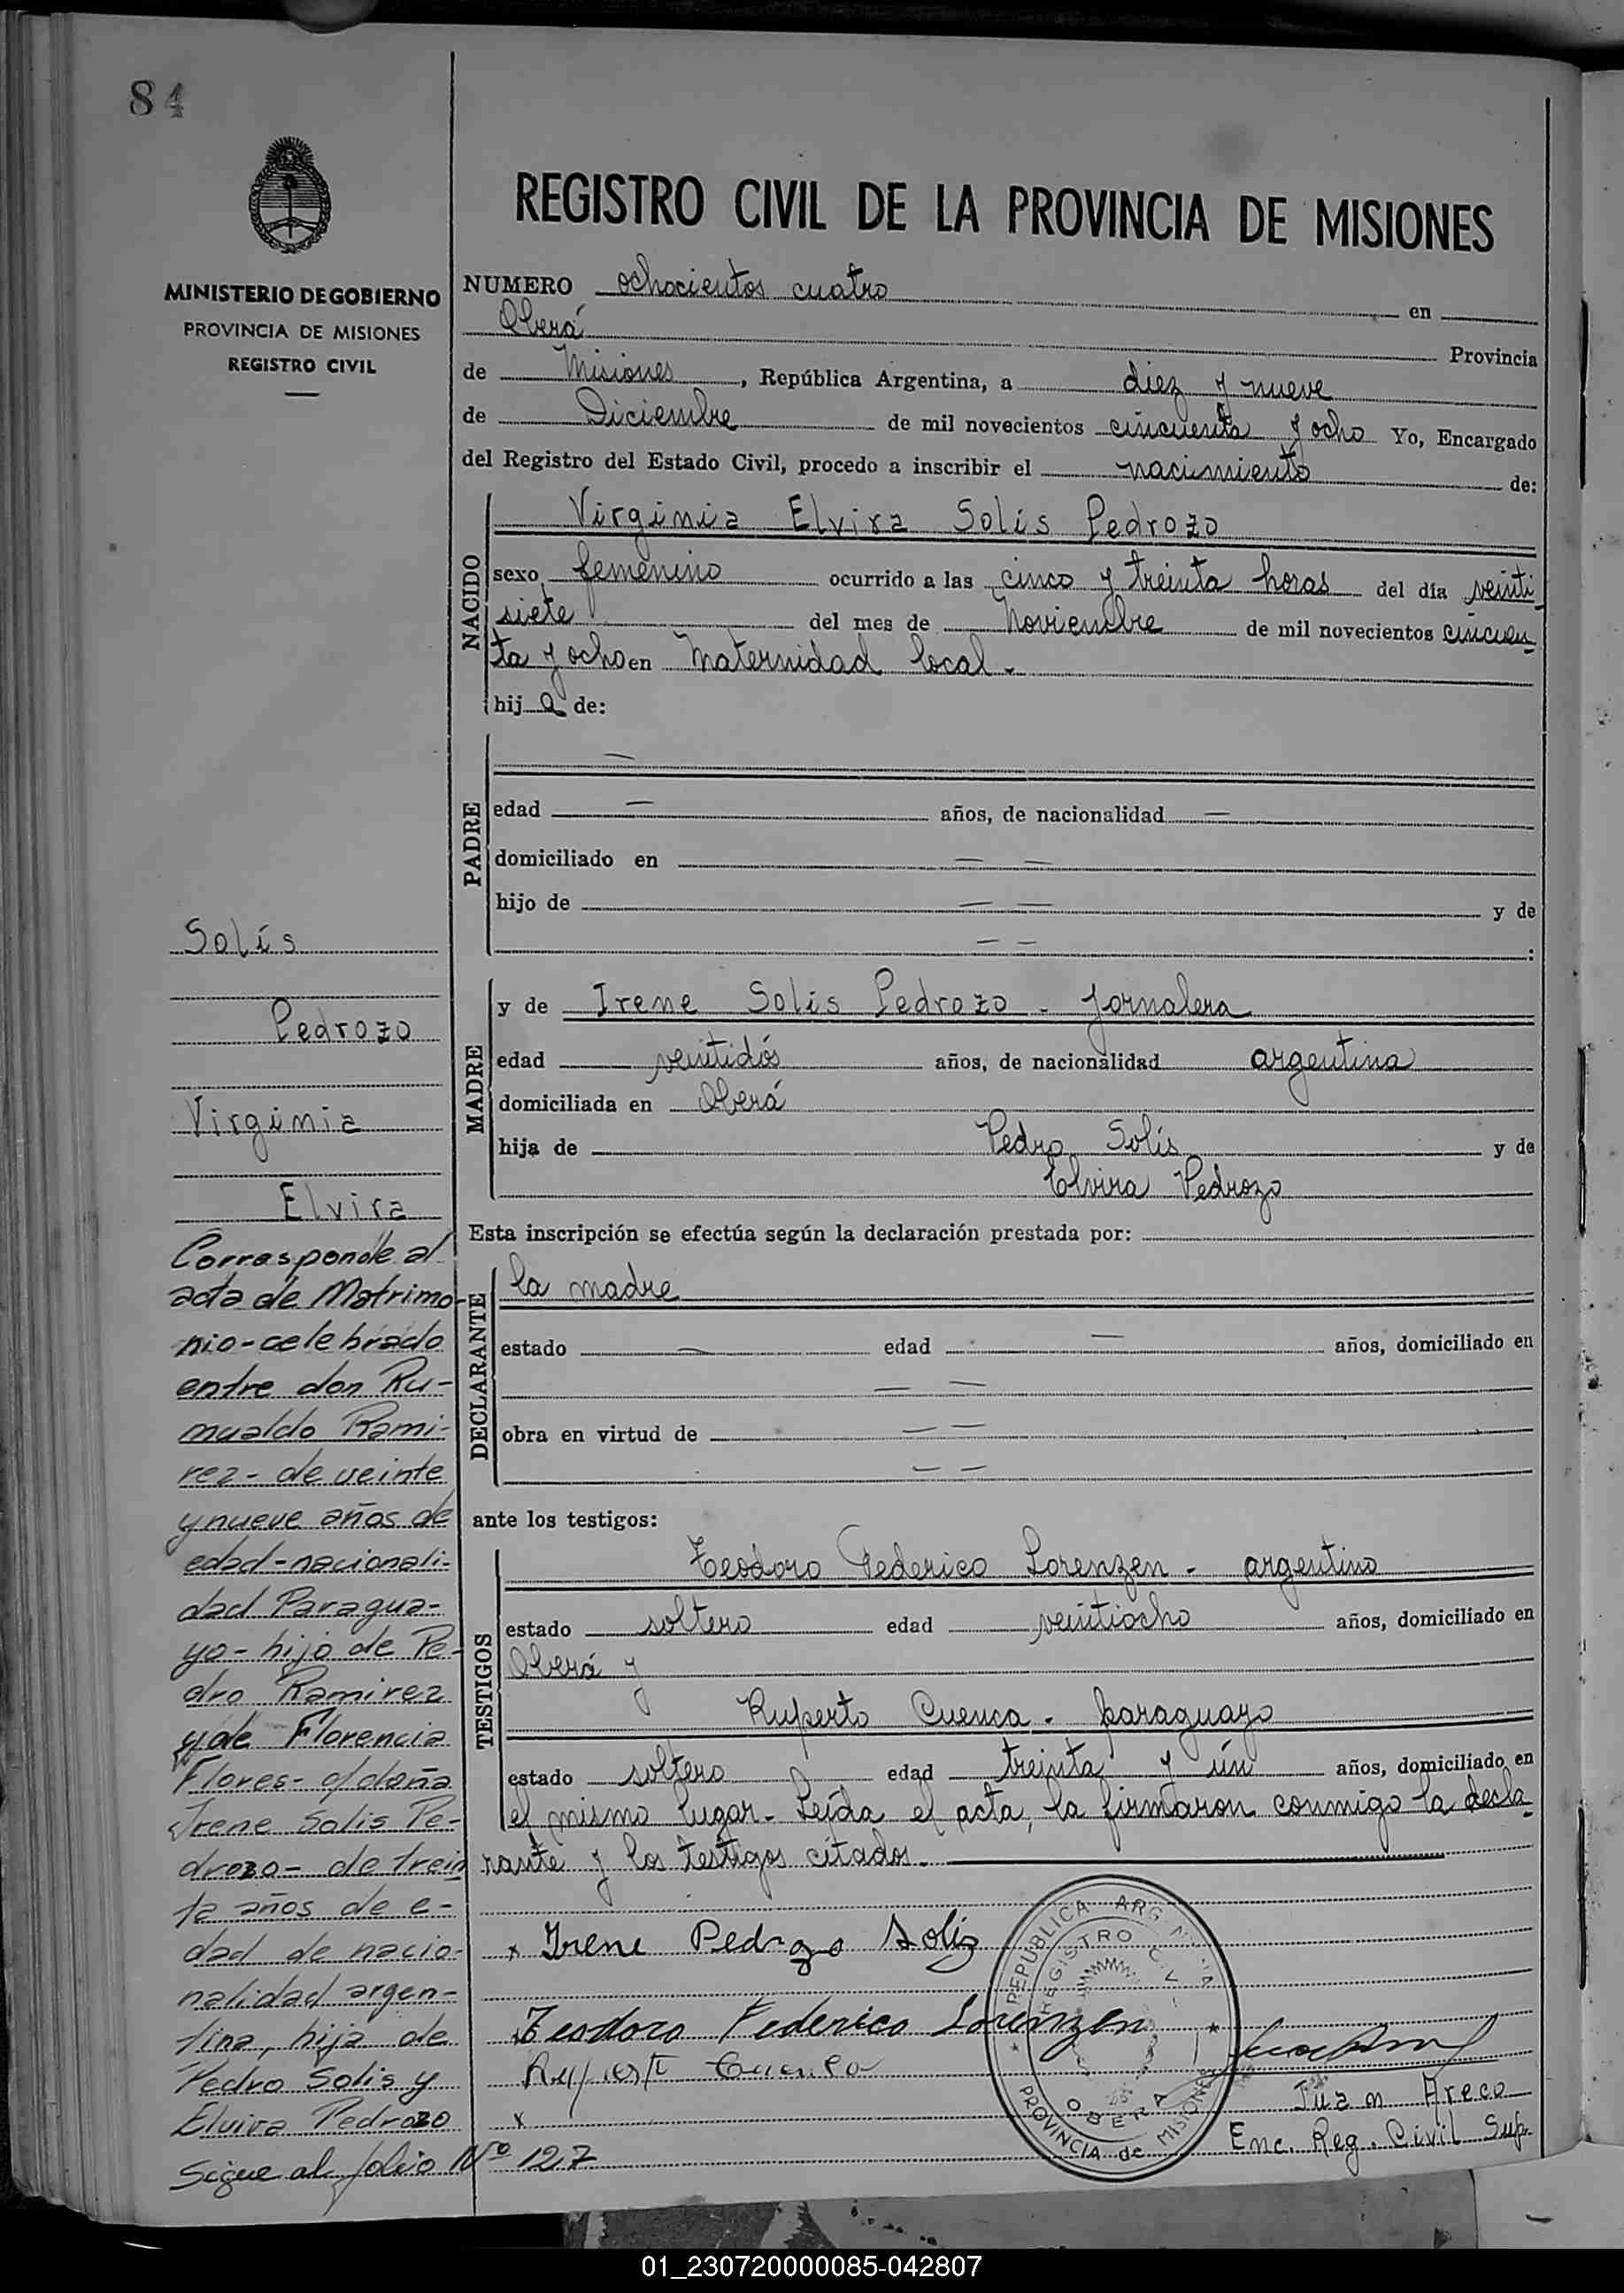 84
MINISTERIO DE GOBIERNO
PROVINCIA DE MISIONES
REGISTRO CIVIL
REGISTRO CIVIL DE LA PROVINCIA DE MISIONES
NUMERO ochocientos cuatro en
Oberá Provincia
de Misiones, República Argentina, a diez y nueve
de Diciembre de mil novecientos cincuenta y ocho Yo, Encargado
del Registro del Estado Civil, procedo a inscribir el nacimiento de:
NACIDO
Virginia Elvira Solís Pedrozo
sexo femenino ocurrido a las cinco y treinta horas del día veinti
siete del mes de Noviembre de mil novecientos cincuen
ta y ocho en Maternidad local.-
hija de:
PADRE
—
edad — años, de nacionalidad —
domiciliado en — —
hijo de — — y de
— — :
MADRE
y de Irene Solís Pedrozo - Jornalera
edad veintidós años, de nacionalidad argentina
domiciliada en Oberá
hija de Pedro Solís y de
Elvira Pedrozo
Esta inscripción se efectúa según la declaración prestada por:
DECLARANTE
la madre
estado — edad — años, domiciliado en
— —
obra en virtud de — —
— —
ante los testigos:
TESTIGOS
Teodoro Federico Lorenzen - argentino
estado soltero edad veintiocho años, domiciliado en
Oberá y
Ruperto Cuenca - paraguayo
estado soltero edad treinta y ún años, domiciliado en
el mismo lugar - Leída el acta, la firmaron conmigo la decla
rante y los testigos citados.-
x Irene Pedrozo Soliz
Teodoro Federico Lorenzen
Ruperto Cuenca
x
REPUBLICA ARGENTINA
REGISTRO CIVIL
OBERA
PROVINCIA de MISIONES
Juan Areco
Enc. Reg. Civil Sup.
Solís
Pedrozo
Virginia
Elvira
Corresponde al
acta de Matrimo-
nio-celebrado
entre don Ru-
mualdo Rami-
rez - de veinte
y nueve años de
edad - nacionali-
dad Paragua-
yo - hijo de Pe-
dro Ramirez
y de Florencia
Flores - c/ doña
Irene Solis Pe-
drozo - de trein
ta años de e-
dad de nacio-
nalidad argen-
tina, hija de
Pedro Solis y
Elvira Pedrozo
Sigue al folio Nº 127
01_230720000085-042807